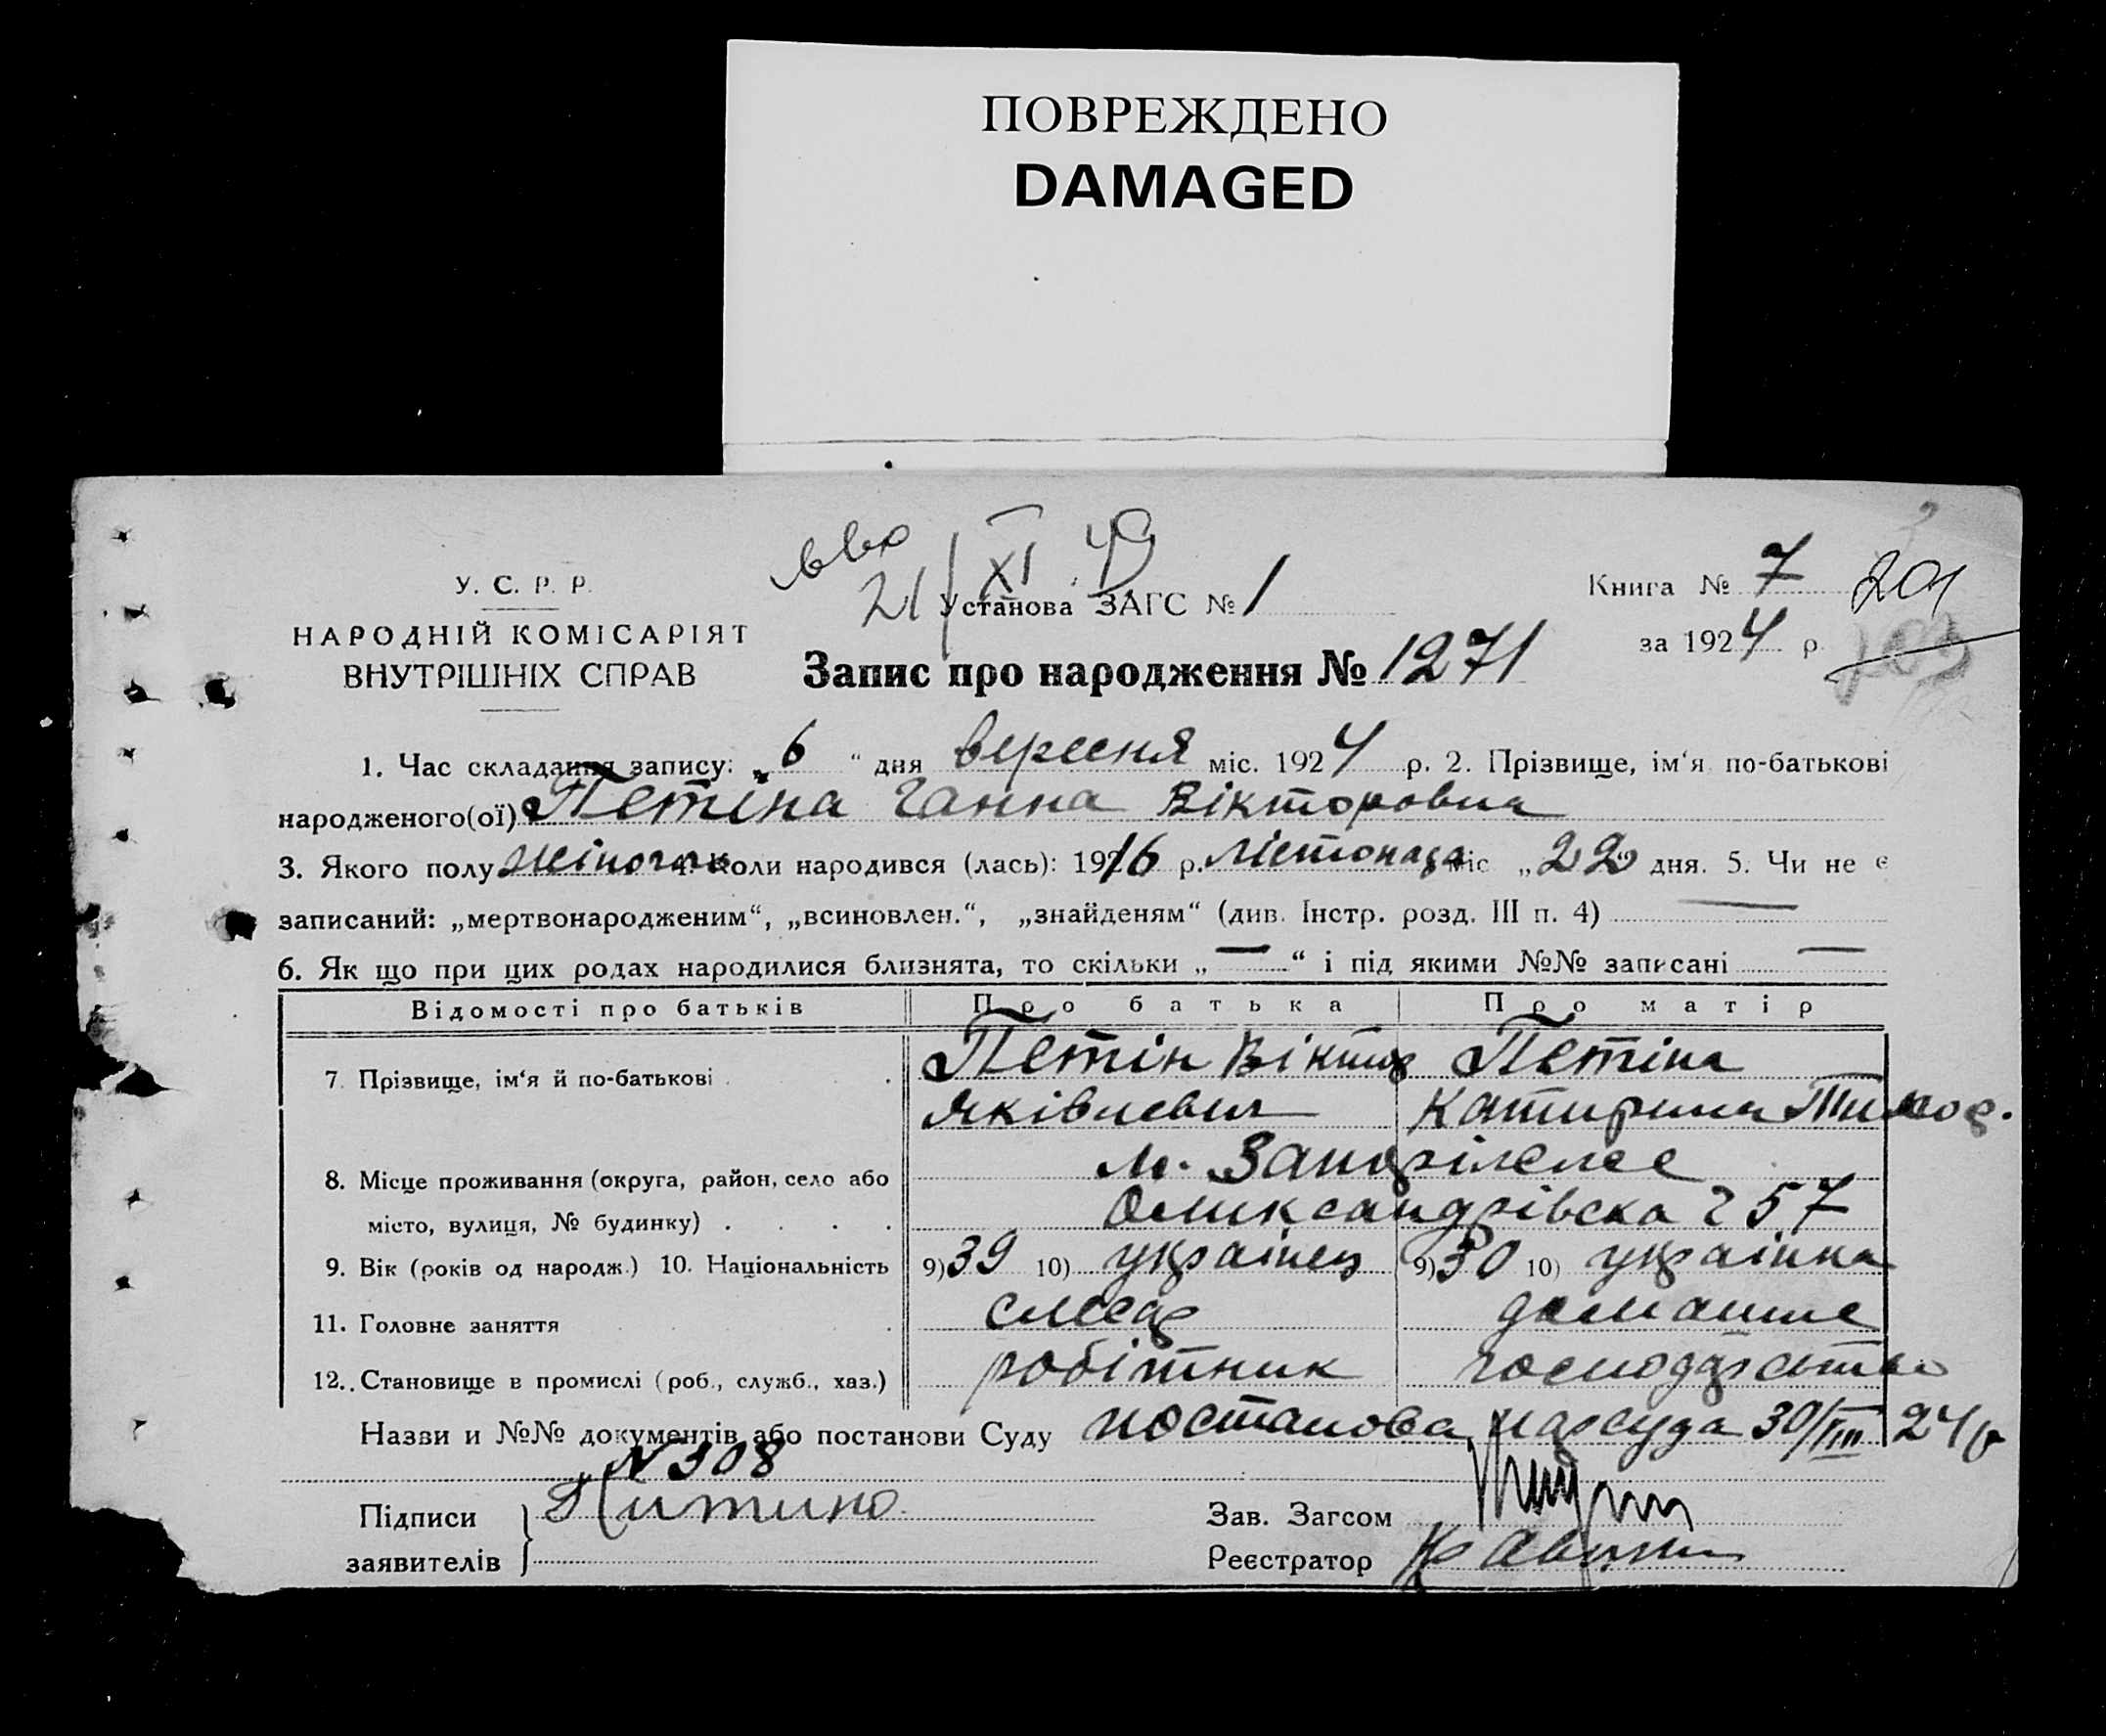 ПОВРЕЖДЕНО
DAMAGED
У. С. Р. Р.
НАРОДНІЙ КОМІСАРІЯТ
ВНУТРІШНІХ СПРАВ
21/XI 49
Установа ЗАГС № 1
Книга № 7 201
за 1924 р. 203
Запис про народження № 1271
1. Час складання запису: „6“ дня вересня міс. 1924 р. 2. Прізвище, ім‘я по-батькові
народженого(ої) Петіна Ганна Вікторовна
3. Якого полу жіночого 4. Коли народився (лась): 1916 р. Лістопада міс „22“ дня. 5. Чи не є
записаний: „мертвонародженим“, „всиновлен.“, „знайденям“ (див. Інстр. розд. III п. 4) —
6. Як що при цих родах народилися близнята, то скільки „—“ і під якими №№ записані —
Відомості про батьків Про батька Про матір
7. Прізвище, ім‘я й по-батькові Петін Віктор Петіна
Яківлевич Катирина Тимоф.
8. Місце проживання (округа, район, село або м. Запоріжжє
місто, вулиця, № будинку) Олександрівска 257
9. Вік (років од народж.) 10. Національність 9) 39 10) українец 9) 30 10) українка
11. Головне заняття слесар домашнє
12. Становище в промислі (роб., служб., хаз.) робітник господарство
Назви и №№ документів або постанови Суду постанова нарсуда 30/VIII 24 р
N 308
Підписи Питина Зав. Загсом
заявителів Реєстратор